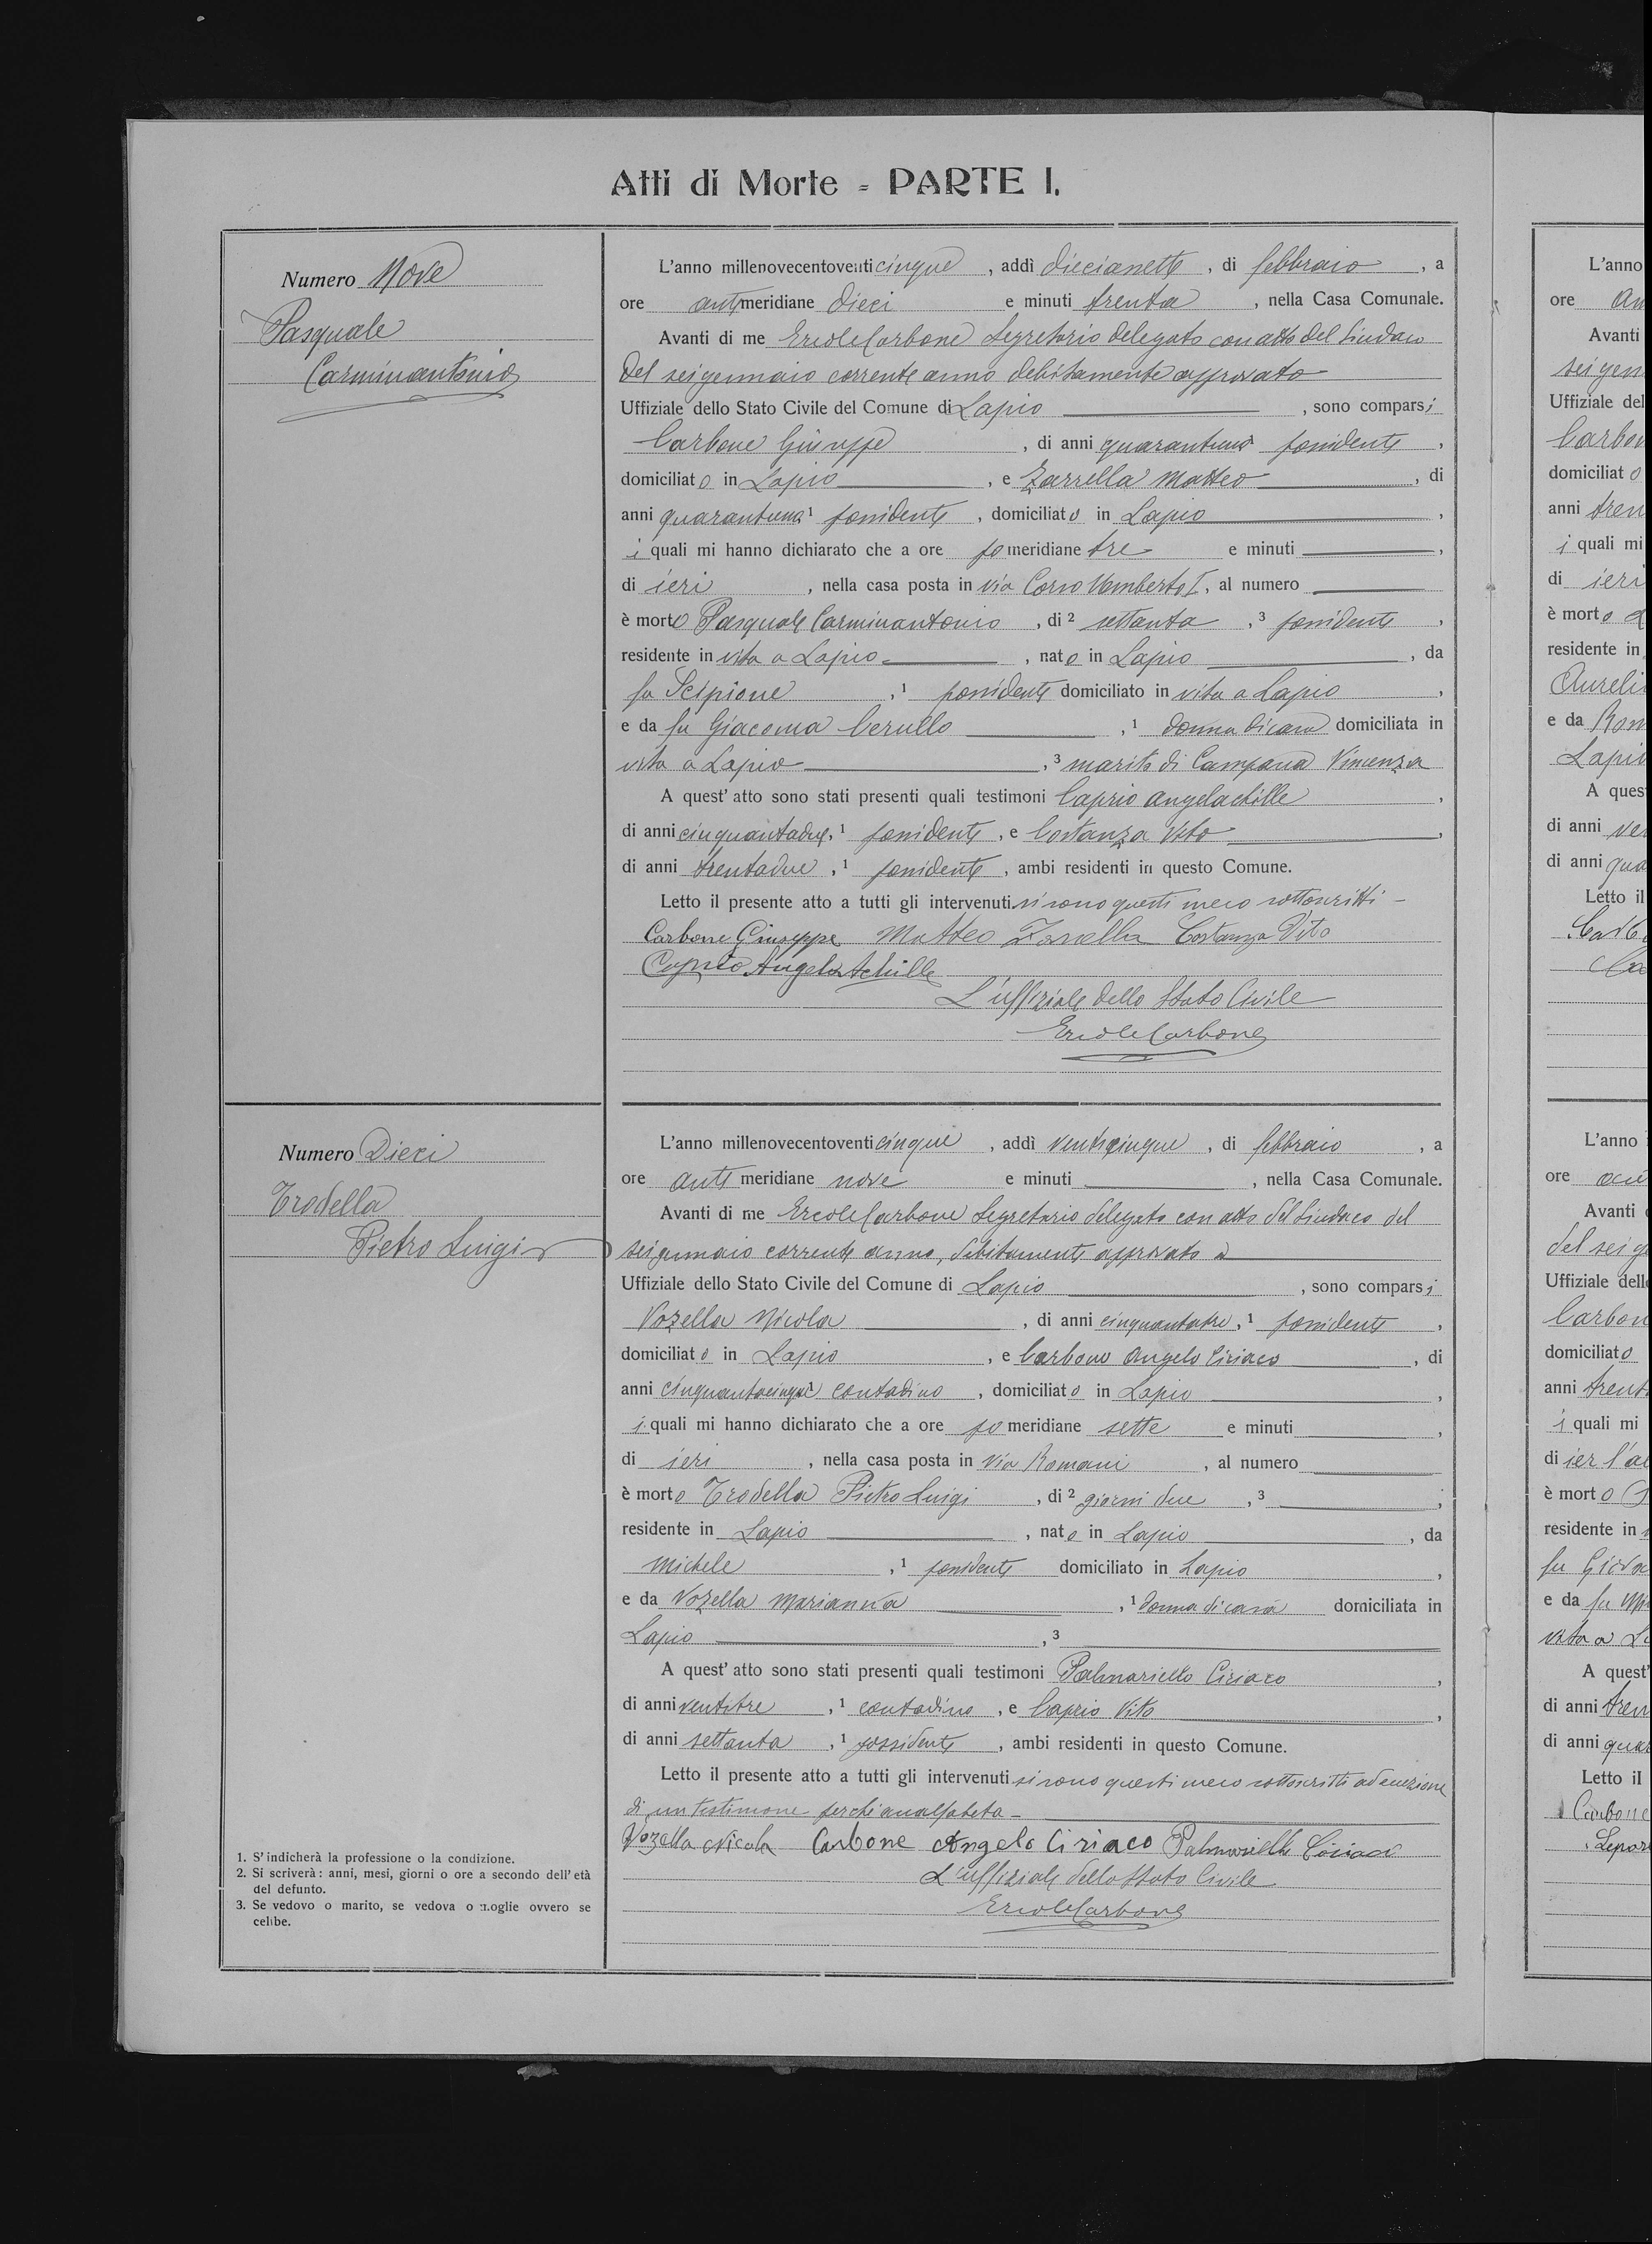 Atti di Morte = PARTE I.
Numero Nove
Pasquale
Carminantonio
L'anno millenovecentoventicinque, addì diecianette, di febbraio, a
ore antimeridiane dieci e minuti trenta, nella Casa Comunale.
Avanti di me Ercole Carbone Segretario delegato con atto del Sindaco
del sei gennaio corrente anno debitamente approvato
Uffiziale dello Stato Civile del Comune di Lapio, sono comparsi
Carbone Giuseppe, di anni quarantuno possidente,
domiciliato in Lapio, e Zarrella Matteo, di
anni quarantuno 1 possidente, domiciliato in Lapio,
i quali mi hanno dichiarato che a ore pomeridiane tre e minuti,
di ieri, nella casa posta in via Corso Umberto I, al numero
è morto Pasquale Carminantonio, di 2 settanta, 3 possidente,
residente in vita a Lapio, nato in Lapio, da
fu Scipione, 1 possidente domiciliato in vita a Lapio,
e da fu Giacoma Cerullo, 1 donna di casa domiciliata in
vita a Lapio, 3 marito di Campana Vincenza
A quest' atto sono stati presenti quali testimoni Caprio Angelachille,
di anni cinquantadue, 1 possidente, e Costanza Vito,
di anni trentadue, 1 possidente, ambi residenti in questo Comune.
Letto il presente atto a tutti gli intervenuti si sono questi meco sottoscritti -
Carbone Giuseppe Matteo Zarrella Costanza Vito
Caprio Angelo Achille
L'uffiziale dello Stato Civile
Ercole Carbone
Numero Dieci
Trodella
Pietro Luigi
L'anno millenovecentoventicinque, addì venticinque, di febbraio, a
ore anti meridiane nove e minuti, nella Casa Comunale.
Avanti di me Ercole Carbone Segretario delegato con atto del Sindaco del
sei gennaio corrente anno, debitamente approvato
Uffiziale dello Stato Civile del Comune di Lapio, sono comparsi
Vozella Nicola, di anni cinquantatre, 1 possidente,
domiciliato in Lapio, e Carbone Angelo Ciriaco, di
anni cinquantacinque 1 contadino, domiciliato in Lapio,
i quali mi hanno dichiarato che a ore po meridiane sette e minuti,
di ieri, nella casa posta in via Romani, al numero
è morto Trodella Pietro Luigi, di 2 giorni due, 3,
residente in Lapio, nato in Lapio, da
Michele, 1 possidente domiciliato in Lapio,
e da Vozella Marianna, 1 donna di casa domiciliata in
Lapio, 3
A quest' atto sono stati presenti quali testimoni Palmariello Ciriaco,
di anni ventitre, 1 contadino, e Caprio Vito,
di anni settanta, 1 possidente, ambi residenti in questo Comune.
Letto il presente atto a tutti gli intervenuti si sono questi meco sottoscritti ad eccezione
di un testimone perchè analfabeta -
Vozella Nicola Carbone Angelo Ciriaco Palmariello Ciriaco
L'uffiziale dello Stato Civile
Ercole Carbone
1. S' indicherà la professione o la condizione.
2. Si scriverà: anni, mesi, giorni o ore a secondo dell' età
del defunto.
3. Se vedovo o marito, se vedova o moglie ovvero se
celibe.
L'anno
ore
Avanti
sei
Uffiziale del
domiciliato
anni
i quali mi
di ieri
è morto
residente in
e da
Lapio
A ques
di anni
di anni
Letto il
L'anno
ore
Avanti
del sei
Uffiziale dell
domiciliato
anni
i quali mi
di ier l'al
è morto
residente in
e da fu
vita a
A quest'
di anni
di anni
Letto il
Carbone